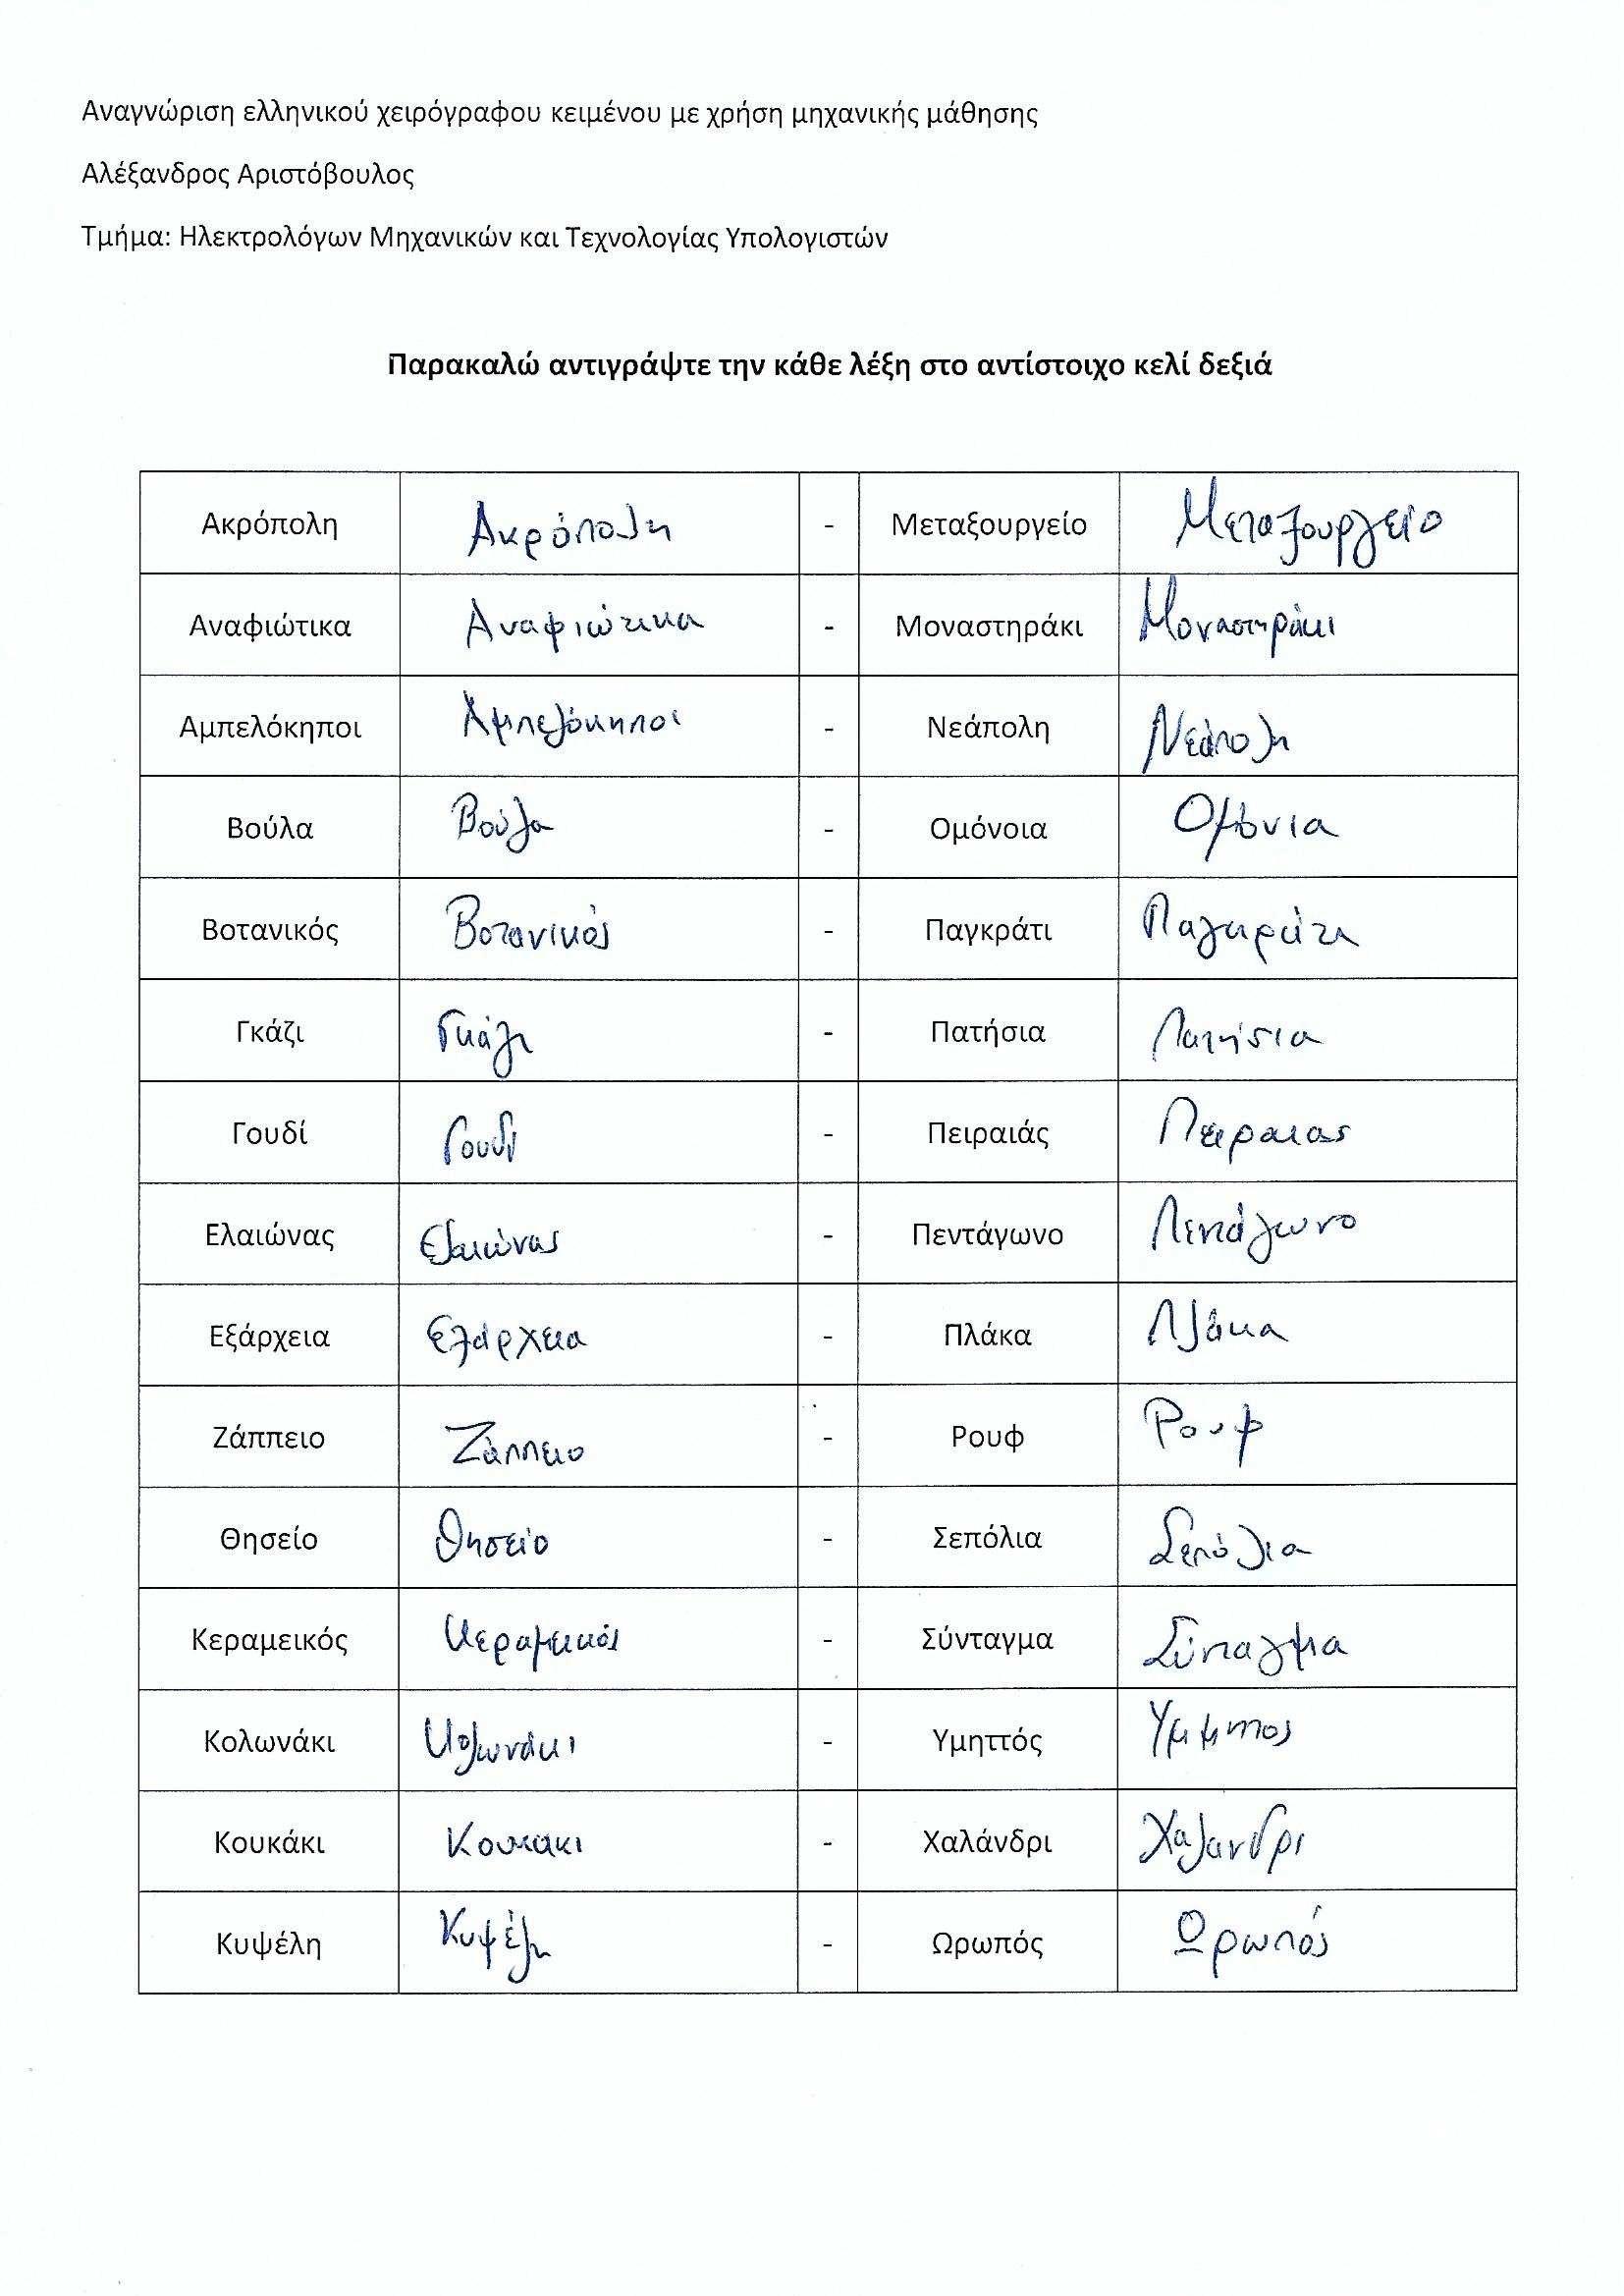 Αναγνώριση ελληνικού χειρόγραφου κειμένου με χρήση μηχανικής μάθησης
Αλέξανδρος Αριστόβουλος
Τμήμα: Ηλεκτρολόγων Μηχανικών και Τεχνολογίας Υπολογιστών
Παρακαλώ αντιγράψτε την κάθε λέξη στο αντίστοιχο κελί δεξιά
Ακρόπολη Ακρόπολη - Μεταξουργείο Μεταξουργείο
Αναφιώτικα Αναφιώτικα - Μοναστηράκι Μοναστηράκι
Αμπελόκηποι Αμπελόκηποι - Νεάπολη Νεάπολη
Βούλα Βούλα - Ομόνοια Ομόνια
Βοτανικός Βοτανικός - Παγκράτι Παγκράτι
Γκάζι Γκάζι - Πατήσια Πατήσια
Γουδί Γουδί - Πειραιάς Πειραιας
Ελαιώνας Ελαιώνας - Πεντάγωνο Πεντάγωνο
Εξάρχεια Εξάρχεια - Πλάκα Πλάκα
Ζάππειο Ζάππειο - Ρουφ Ρουφ
Θησείο Θησείο - Σεπόλια Σεπόλια
Κεραμεικός Κεραμεικός - Σύνταγμα Σύνταγμα
Κολωνάκι Κολωνάκι - Υμηττός Υμηττος
Κουκάκι Κουκακι - Χαλάνδρι Χαλανδρι
Κυψέλη Κυψέλη - Ωρωπός Ωρωπός